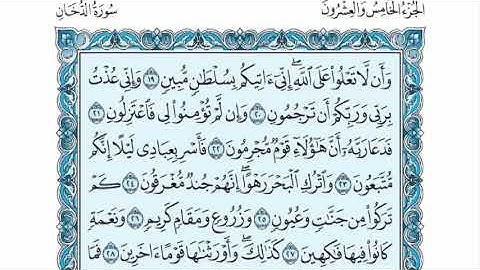 سُورَةُ الدُّخَانِ الجُزْءُ الخَامِسُ وَالعِشْرُونَ
وَأَن لَّا تَعْلُوا۟ عَلَى ٱللَّهِ ۖ إِنِّىٓ ءَاتِيكُم بِسُلْطَٰنٍ مُّبِينٍ ١٩ وَإِنِّى عُذْتُ
بِرَبِّى وَرَبِّكُمْ أَن تَرْجُمُونِ ٢٠ وَإِن لَّمْ تُؤْمِنُوا۟ لِى فَٱعْتَزِلُونِ ٢١
فَدَعَا رَبَّهُۥٓ أَنَّ هَٰٓؤُلَآءِ قَوْمٌ مُّجْرِمُونَ ٢٢ فَأَسْرِ بِعِبَادِى لَيْلًا إِنَّكُم
مُّتَّبَعُونَ ٢٣ وَٱتْرُكِ ٱلْبَحْرَ رَهْوًا ۖ إِنَّهُمْ جُندٌ مُّغْرَقُونَ ٢٤ كَمْ
تَرَكُوا۟ مِن جَنَّٰتٍ وَعُيُونٍ ٢٥ وَزُرُوعٍ وَمَقَامٍ كَرِيمٍ ٢٦ وَنَعْمَةٍ
كَانُوا۟ فِيهَا فَٰكِهِينَ ٢٧ كَذَٰلِكَ ۖ وَأَوْرَثْنَٰهَا قَوْمًا ءَاخَرِينَ ٢٨ فَمَا